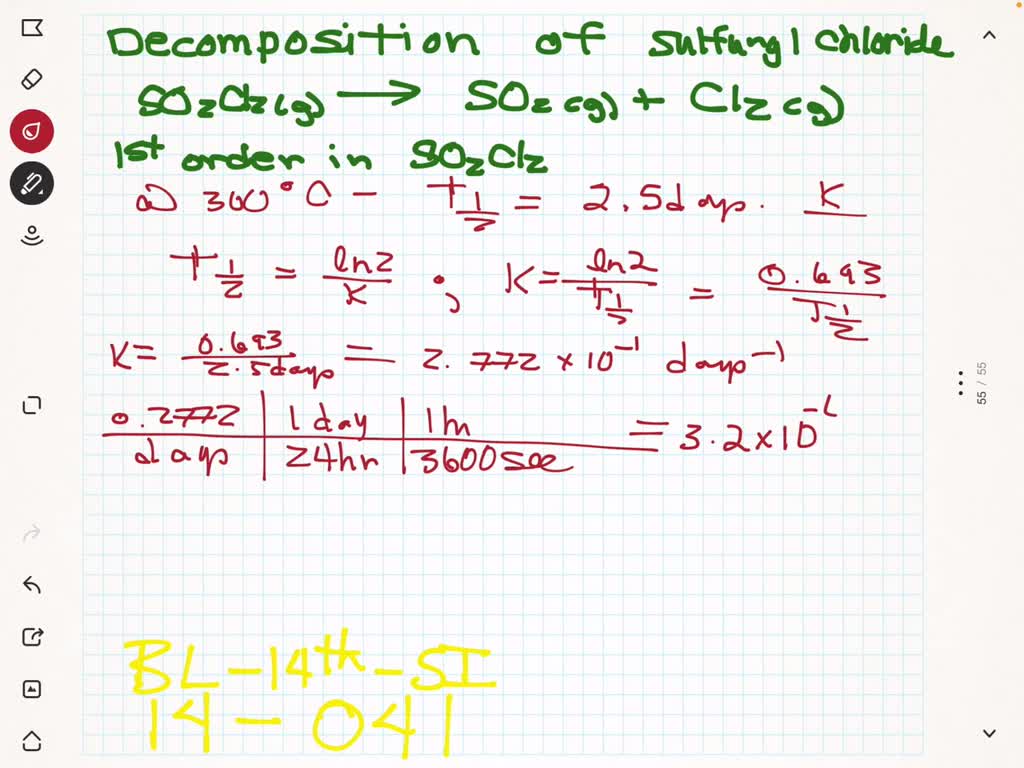 Decomposition of Sulfuryl Chloride
SO₂Cl₂(g) → SO₂(g) + Cl₂(g)
1st order in SO₂Cl₂
@ 300°C - t 1/2 = 2.5 days. K
t 1/2 = ln2/K ; K = ln2/t 1/2 = 0.693/T 1/2
K = 0.693/2.5days = 2.772 × 10⁻¹ days⁻¹
0.2772/days | 1 day/24hr | 1h/3600sec = 3.2×10
BL-14th-SI
14-041
55 / 55